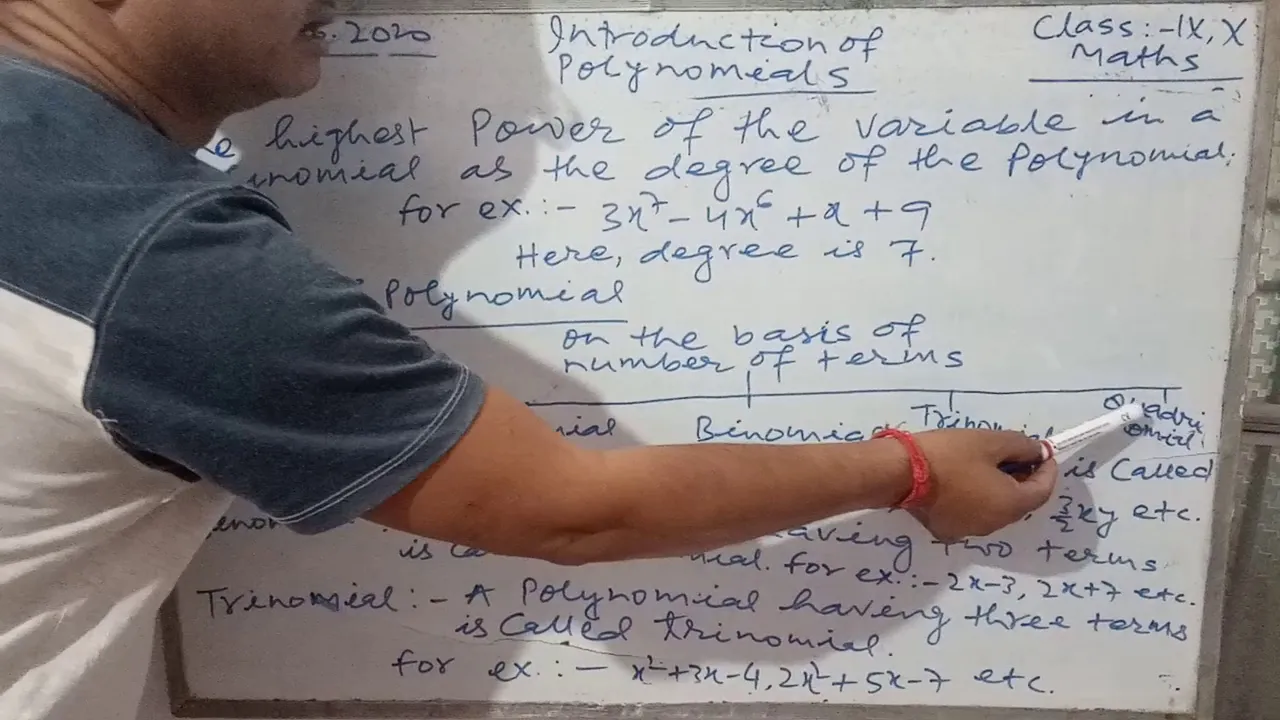 2020
Introduction of
Polynomials
Class:-IX, X
Maths
highest Power of the variable in a
as the degree of the Polynomial.
for ex.:- 3x⁷ - 4x⁶ + x + 9
Here, degree is 7.
Polynomial
on the basis of
number of terms
Binomial
is Called
3/2 xy etc.
having two terms
is
for ex.:- 2x-3, 2x+7 etc.
Trinomial:- A Polynomial having three terms
is Called trinomial.
for ex.:- x²+3x-4, 2x²+5x-7 etc.